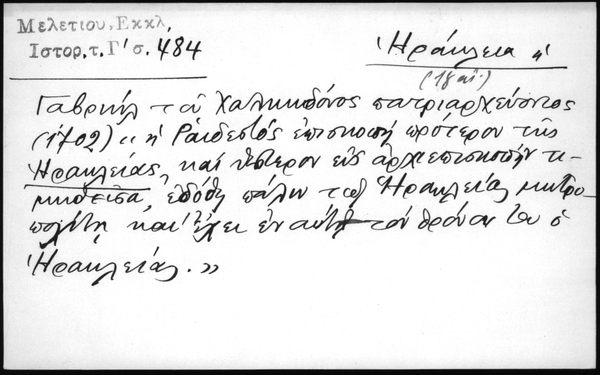 Μελετίου, Εκκλ.
Ιστορ. τ. Γ' σ. 484
Ἡράκλεια ἡ
(18 αἰ.)
Γαβριήλ τοῦ Χαλκηδόνος πατριαρχεύοντος
(1702) « ἡ Ραιδεστός ἐπισκοπή πρότερον τῆς
Ἡρακλείας, καί ὕστερον εἰς ἀρχιεπισκοπήν τι-
μηθεῖσα, ἐδόθη πάλιν τῷ Ἡρακλείας μητρο-
πολίτῃ καί ἔχει ἐν αὐτῇ τόν θρόνον του ὁ
Ἡρακλείας. »